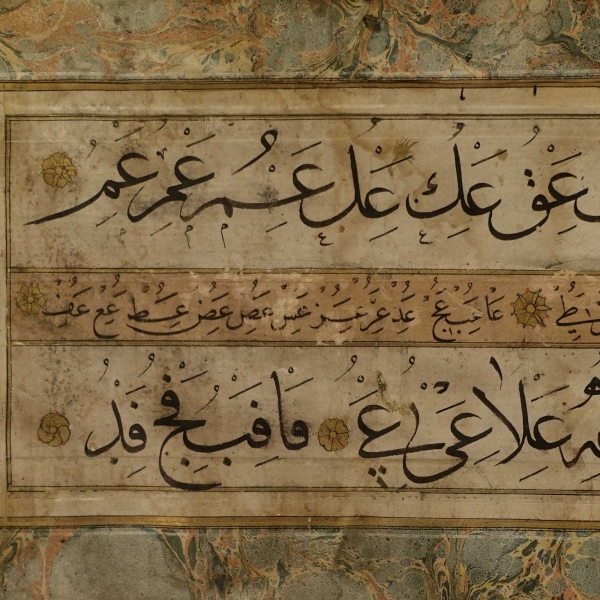 عق عك عل عم عم عم
عا عب عج عد عر عز عس عص عض عط عع عف
علا عى عے فا فب فج فد